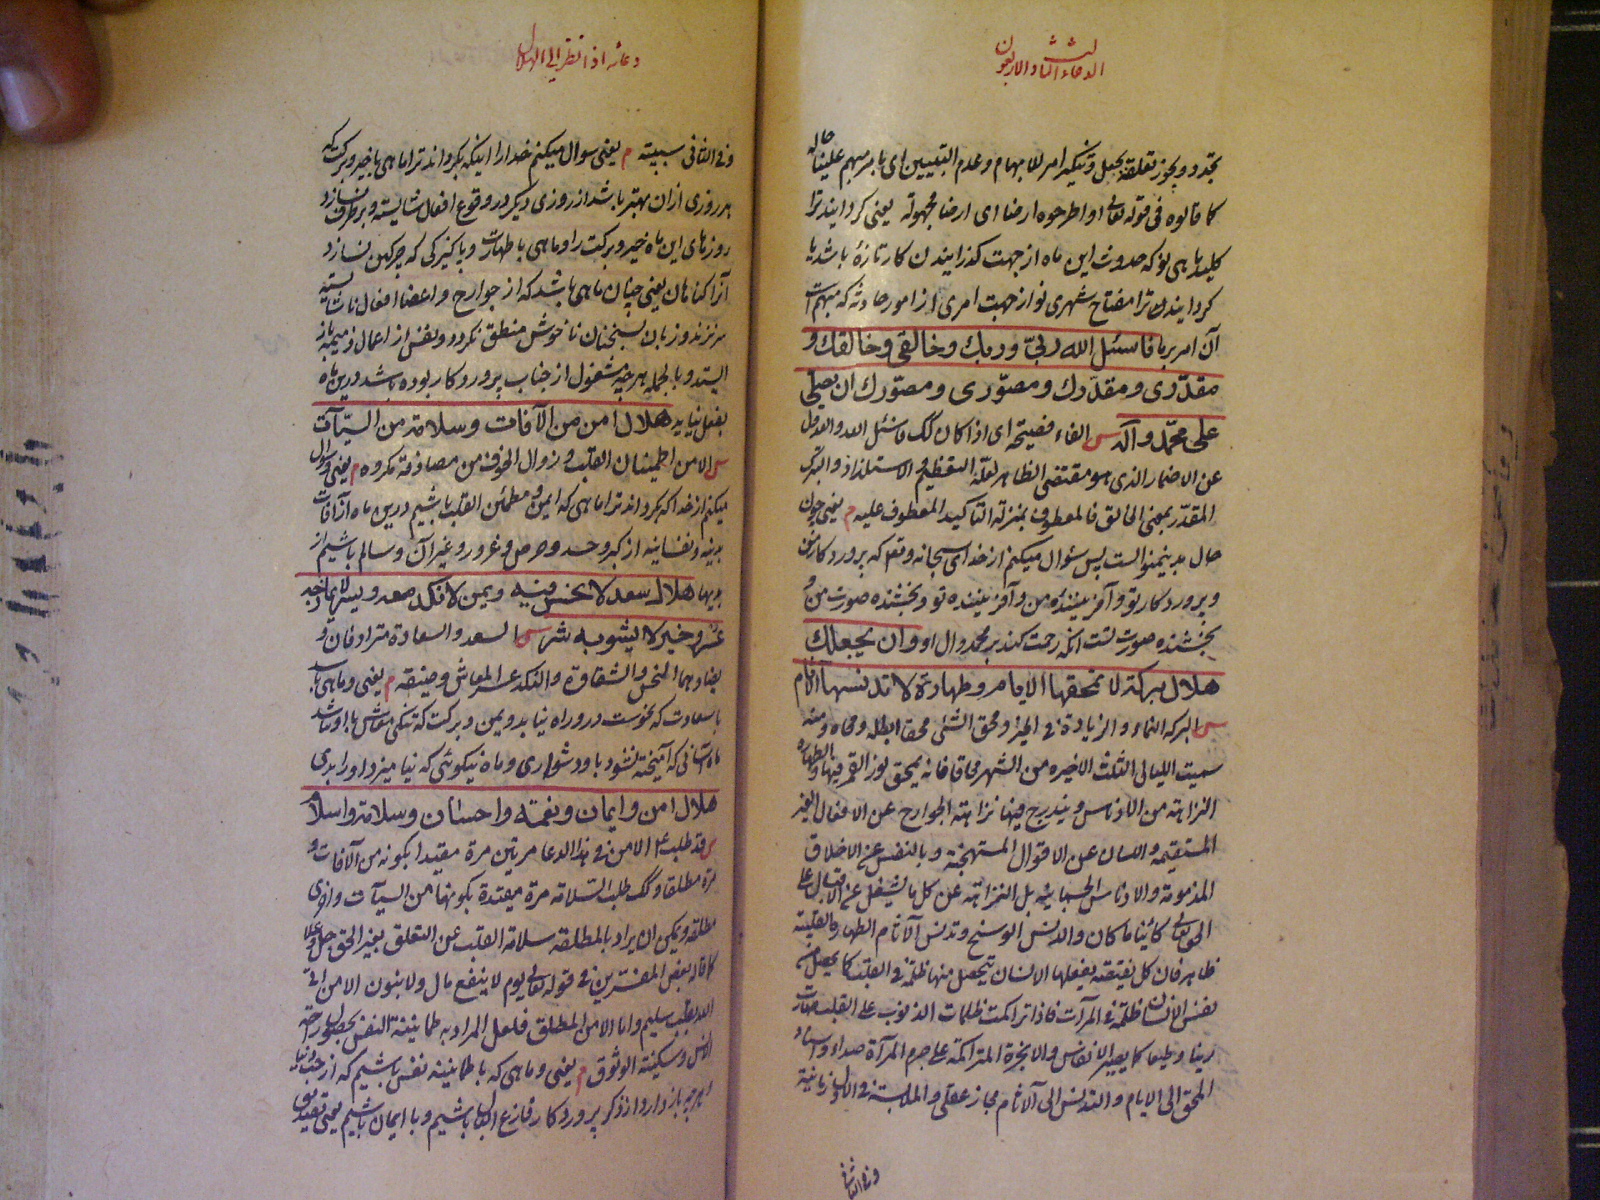 الدعاء الثالث والاربعون
تجدد ويجوز تعلقه بجعل وتنكير امر للابهام وعدم التعيين اى بامر مبهم علينا حاله
كما قالوه فى قوله تعالى او اطرحوه ارضا اى ارضا مجهولة يعنى كردانيد ترا
كليد ماهى نو كه حدوث اين ماه از جهت كذرانيدن كار تازهٔ باشد يا
كردانيدن ترا مفتاح شهرى نو از جهت امرى از امور حادثه كه مبهم است
آن امر بر ما فاسئل الله ربى وربك وخالقى وخالقك و
مقدّرى ومقدّرك ومصوّرى ومصوّرك ان يصلى
على محمّد وآله س الفاء فصيحة اى اذا كان كك فاسئل الله والعدول
عن الاضمار الذى هو مقتضى الظاهر لعله التعظيم والاستلذاذ والتبرك
المقدّر بمعنى الخالق فالمعطوف بمنزلة التاكيد المعطوف عليه م يعنى چون
حال بدينمنوالست پس سئوال ميكنم از خداى سبحانه وتعالى كه پروردكار من
و پروردكار تو و آفريننده من و آفريننده تو و بخشنده صورت من و
بخشنده صورت تست آنكه رحمت كند بر محمد وال او وان يجعلك
هلال بركة لا تمحقها الايام وطهارة لا تدنسها الآثام
س البركه النماء والزيادة فى الخير ومحق الشئى محقا ابطله ومحاه ومنه
سميت الليالى الثلث الاخيره من الشهر محاقا فانه يمحق نور القمر فيها والطهارة
النزاهة من الادناس ويندرج فيها نزاهة الجوارح عن الافعال الغير
المستقيمه واللسان عن الاقوال المستهجنة وبالنفس عن الاخلاق
المذمومة والادناس الجسمانيه بل النزاهة عن كل ما يشغل عن الاقبال على
الحق تعالى كائنا ما كان والدنس الوسخ وتدنس الآثام الطهارة القلبية
ظاهر فان كل نقيصه يفعلها الانسان يحصل منها ظلمة فى القلب كما يحصل من
نفس الانسان ظلمة فى المرآت فاذا تراكمت ظلمات الذنوب على القلب صارت
رينا وطبعا كما يصير الانفاس والابخرة المتراكمة على جرم المرآة صداء واسناد
المحق الى الايام والتدنس الى الآثام مجاز عقلى والملابسة فى الاول زمانية
وفى الثانى
دعائه اذا نظر الى الهلال
وفى الثانى سببيته م يعنى سوال ميكنم خدا را اينكه بكرداند ترا ماهى با خير وبركت كه
هر روزى از ان بهتر باشد از روزى ديكر در وقوع افعال شايسته وبر طرف نسازد
روزهاى اين ماه خير وبركت را وماهى با طهارت وپاكيزكى كه چركين نسازد
آنرا كناهان يعنى چنان ماهى باشد كه از جوارح واعضا افعال ناشايسته
سر نزند وزبان بسخنان ناخوش منطلق نكردد ونفس از اعمال ذميمه باز
ايستد وبالجمله هر چه مشغول از جناب پروردكار بوده باشد درين ماه
بفعل نيايد هلال امن من الآفات وسلامة من السيّآت
س الامن اطمينان القلب وزوال الخوف من مصادفة مكروه م يعنى وسوال
ميكنم از خدا كه بكرداند ترا ماهى كه ايمن ومطمئن القلب باشيم درين ماه از آفات
بدنيه ونفسانيه از كبر وحسد وحرص وغرور وغير آن وسالم باشيم از
بديها هلال سعد لا نحس فيه ويمن لا نكد معه ويسر لا يمازجه
عسر وخير لا يشوبه شر س السعد والسعادة مترادفان و
يضادهما النحس والشقاوة والنكد عسر المعاش وضيقه م يعنى وماهى باشد
با سعادت كه نحوست درو راه نيابد ويمن وبركت كه تنكى معاش با او نباشد
ماه آسانى كه آميخته نشود با او دشوارى وماه نيكوئى كه نياميزد او را بدى
هلال امن وايمان ونعمة واحسان وسلامة واسلام
س قد طلب ع الامن فى هذا الدعا مرتين مرة مقيدا بكونه من الآفات و
مرة مطلقا وكك طلب السلامة مرة مقيدة بكونها من السيآت واخرى
مطلقه ويمكن ان يراد بالمطلقه سلامة القلب عن التعلق بغير الحق جل وعلا
كما قاله بعض المفسرين فى قوله تعالى يوم لا ينفع مال ولا بنون الا من اتى
الله بقلب سليم واما الامن المطلق فلعل المراد به طمانينة النفس بحصول راحة
الانس وسكينة الوثوق م يعنى وماهى كه با طمانينه نفس باشيم كه از حب دنيا
هرچه باز دارد از ذكر پروردكار فارغ البال باشيم وبا ايمان باشيم يعنى تصديق